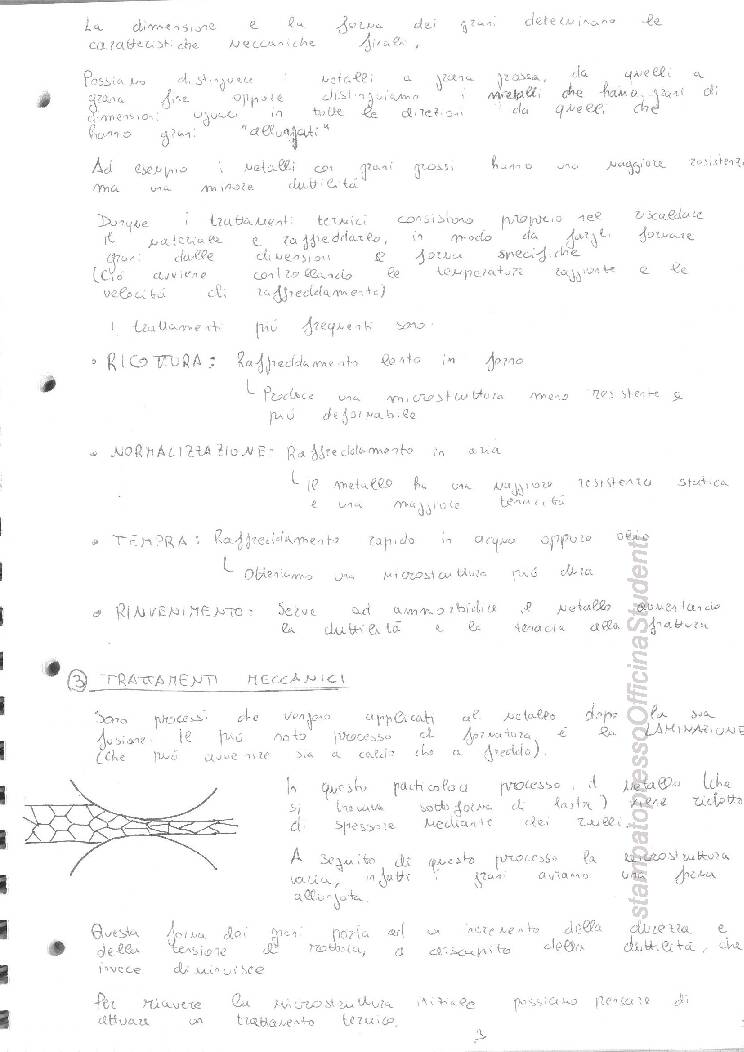 La dimensione e la forma dei grani determinano le
caratteristiche meccaniche finali.
Possiamo distinguere i metalli a grana grossa, da quelli a
grana fine oppure distinguiamo i metalli che hanno grani di
dimensioni uguali in tutte le direzioni da quelli che
hanno grani "allungati"
Ad esempio i metalli con grani grossi hanno una maggiore resistenza
ma una minore duttilità
Dunque i trattamenti termici consistono proprio nel riscaldare
il materiale e raffreddarlo, in modo da fargli formare
grani dalle dimensioni e forma specifiche
(Ciò avviene controllando le temperature raggiunte e le
velocità di raffreddamento)
I trattamenti più frequenti sono:
• RICOTTURA: Raffreddamento lento in forno
Produce una microstruttura meno resistente e
più deformabile
• NORMALIZZAZIONE: Raffreddamento in aria
il metallo ha una maggiore resistenza statica
e una maggiore tenacità
• TEMPRA: Raffreddamento rapido in acqua oppure olio
Otteniamo una microstruttura più dura
• RINVENIMENTO: Serve ad ammorbidire il metallo aumentando
la duttilità e la tenacia alla frattura
3 TRATTAMENTI MECCANICI
Sono processi che vengono applicati al metallo dopo la sua
fusione. Il più noto processo di formatura è la LAMINAZIONE
(che può avvenire sia a caldo che a freddo).
In questo particolare processo, il metallo (che
si trova sotto forma di lastra) viene ridotto
di spessore mediante dei rulli.
A seguito di questo processo la microstruttura
varia, infatti i grani avranno una forma
allungata.
Questa forma dei grani porta ad un incremento della durezza e
della tensione di rottura, a discapito della duttilità, che
invece diminuisce
Per riavere la microstruttura iniziale possiamo pensare di
attuare un trattamento termico.
3
stampatopressoOfficinaStudenti